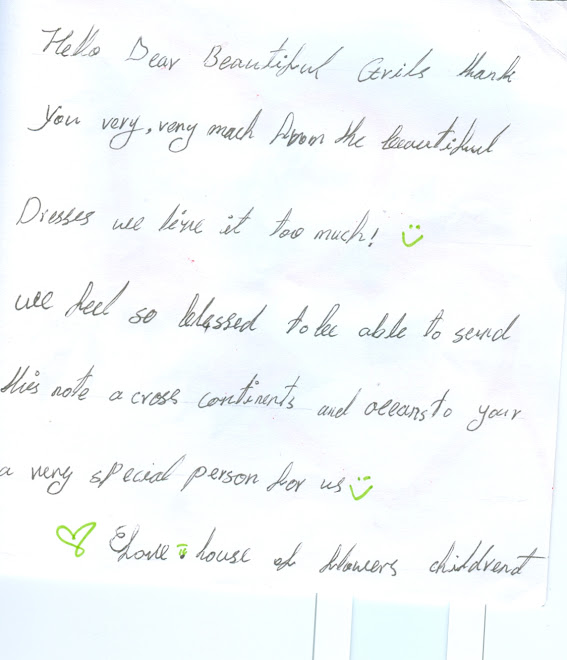 Hello Dear Beautiful Grils thank
you very, very much from the beautiful
Dresses we like it too much!
we feel so blessed to be able to send
this note a cross continents and oceans to your
a very special person for us
love house of flowers childrent